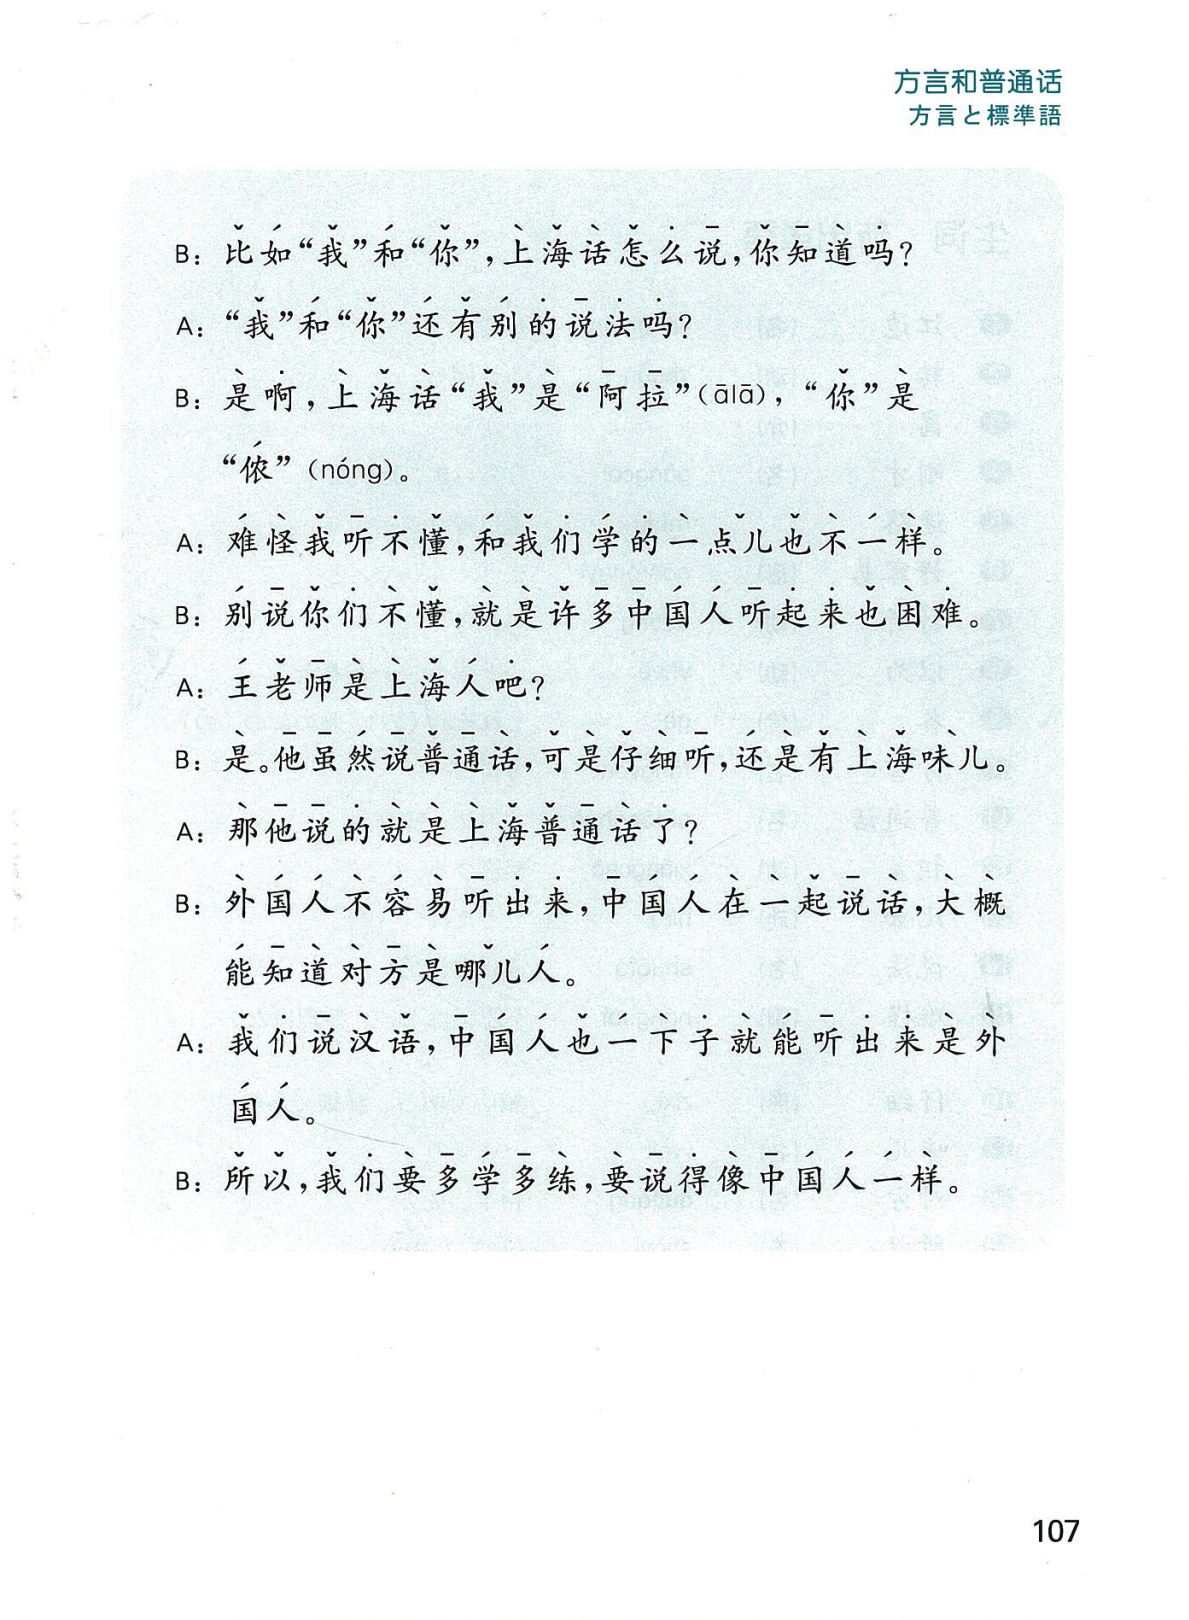 方言和普通话
方言と標準語
B：比如“我”和“你”，上海话怎么说，你知道吗？
A：“我”和“你”还有别的说法吗？
B：是啊，上海话“我”是“阿拉”(ālā)，“你”是
“侬”(nóng)。
A：难怪我听不懂，和我们学的一点儿也不一样。
B：别说你们不懂，就是许多中国人听起来也困难。
A：王老师是上海人吧？
B：是。他虽然说普通话，可是仔细听，还是有上海味儿。
A：那他说的就是上海普通话了？
B：外国人不容易听出来，中国人在一起说话，大概
能知道对方是哪儿人。
A：我们说汉语，中国人也一下子就能听出来是外
国人。
B：所以，我们要多学多练，要说得像中国人一样。
107